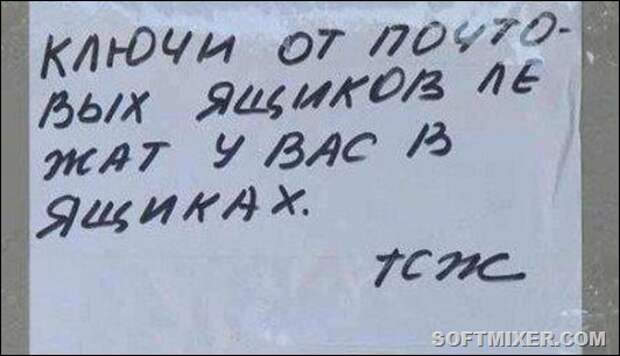 КЛЮЧИ ОТ ПОЧТО-
ВЫХ ЯЩИКОВ ЛЕ
ЖАТ У ВАС В
ЯЩИКАХ.
ТСЖ
SOFTMIXER.COM